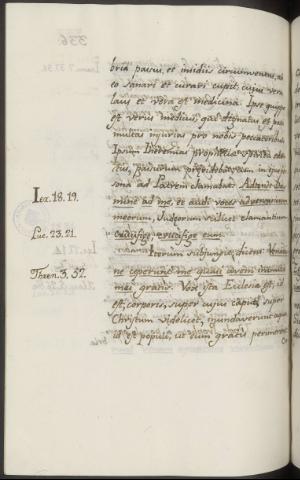 bria passus, et insidiis circumventus, ab
eo sanari et curari cupit, cujus vera
laus et vera est medicina. Ipse quippe
est verus medicus, qui dignatus est
multas injurias pro nobis peccatoribus
Ipsum Hieremias propheticè
passurum praedicebat, cum in ejus
sona ad Patrem clamabat: Attende Do-
mine ad me, et audi voces adversariorum
meorum, Judeorum scilicet clamantium
crucifige, crucifige eum.
Iterum subjungit, dicens: Venatio-
ne ceperunt me quasi avem inimici
mei gratis. Vox ista Ecclesiae est, id
est, corporis, super cujus caput, super
Christum videlicet, inundaverunt aquae
id est populi, ut eum gratis perimerent
Ier. 18. 19.
Luc. 23. 21.
Thren. 3. 52.